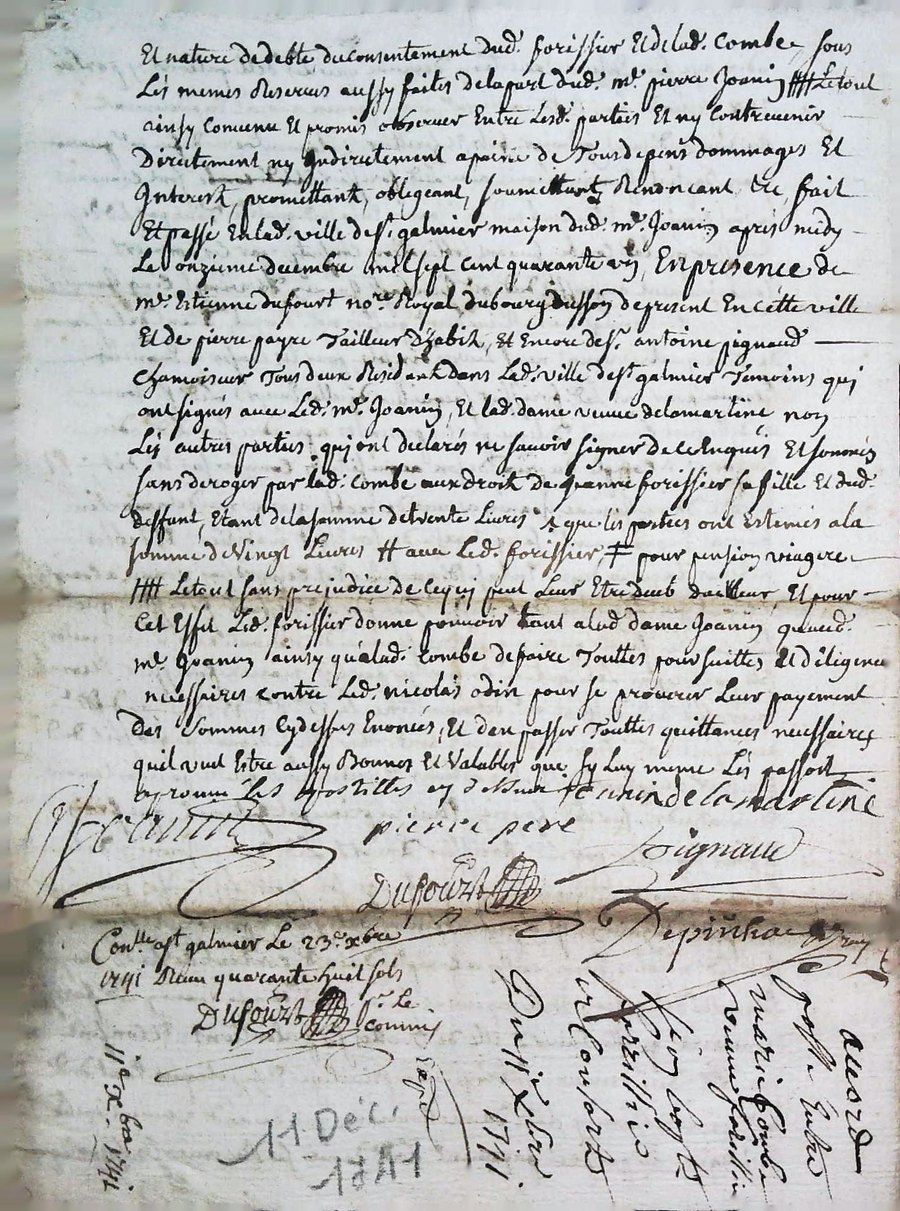 Et nature de debte du consentement dud. forissier Et de lad. Combe sous
Les memes Reserves aussy faites de la part dud. me. pierre Joanin Le tout
ainsy convenu Et promis observer Entre Lesd. parties Et ny Contrevenir
Directement ny Indirectement a peine de Tous depens dommages Et
Interest, promettant, obligeant, soumettant, Renoncant &c. fait
Et passé En lad. ville de St. galmier maison dud. me. Joanin aprés midy
Le onzieme decembre mil sept cent quarante un, En presence de
me. Estienne dufourt nore. Royal du bourg dusson de present En cette ville
Et de pierre payre Tailleur d'habit, Et Encore de Sr. antoine pignaud
Chamoiseur Tous deux Resident dans Lad. ville de St galmier Temoins qui
ont signés avec Led. me. Joanin, Et lad. dame veuve delamartine non
Les autres parties qui ont declarés ne savoir signer de ce Enquis Et somméz
sans deroger par lad. Combe aux droit de Jeanne forissier sa fille Et dud.
deffunt, Etant de la somme de trente Livres que les parties ont Estemés a la
somme de Vingt Livres # avec Led. forissier, ‡ pour pension viagere
Le tout sans prejudice de ce qui peut Leur Etre deub dailleur, Et pour
Cet Effet Led. forissier donne pouvoir tant a lad dame Joanin quaud.
me. Joanin ainsy qua lad. Combe de faire Touttes poursuittes Et diligence
necessaires contre Led. nicolas odin pour se procurer Leur payement
Des Sommes Cy dessus Enoncés, Et d'en passer Touttes quittances necessaires
quil veut Estre aussy Bonnes Et Valables que sy Luy meme Les passoit
aprouvé les apostilles cy dessus Joanin de lamartine
Joanin pierre pere Pignaud
Dufourt
Depinhac
Conlle. a St galmier Le 23e. xbre
1741 Reçu quarante huit sols
Dufourt pr. le
commis
11e. xbre 1741
11 Déc.
1741
Du 11 xbre 1741
et Consorts
forissier
marie Combe
veuve forissier
passé Entre